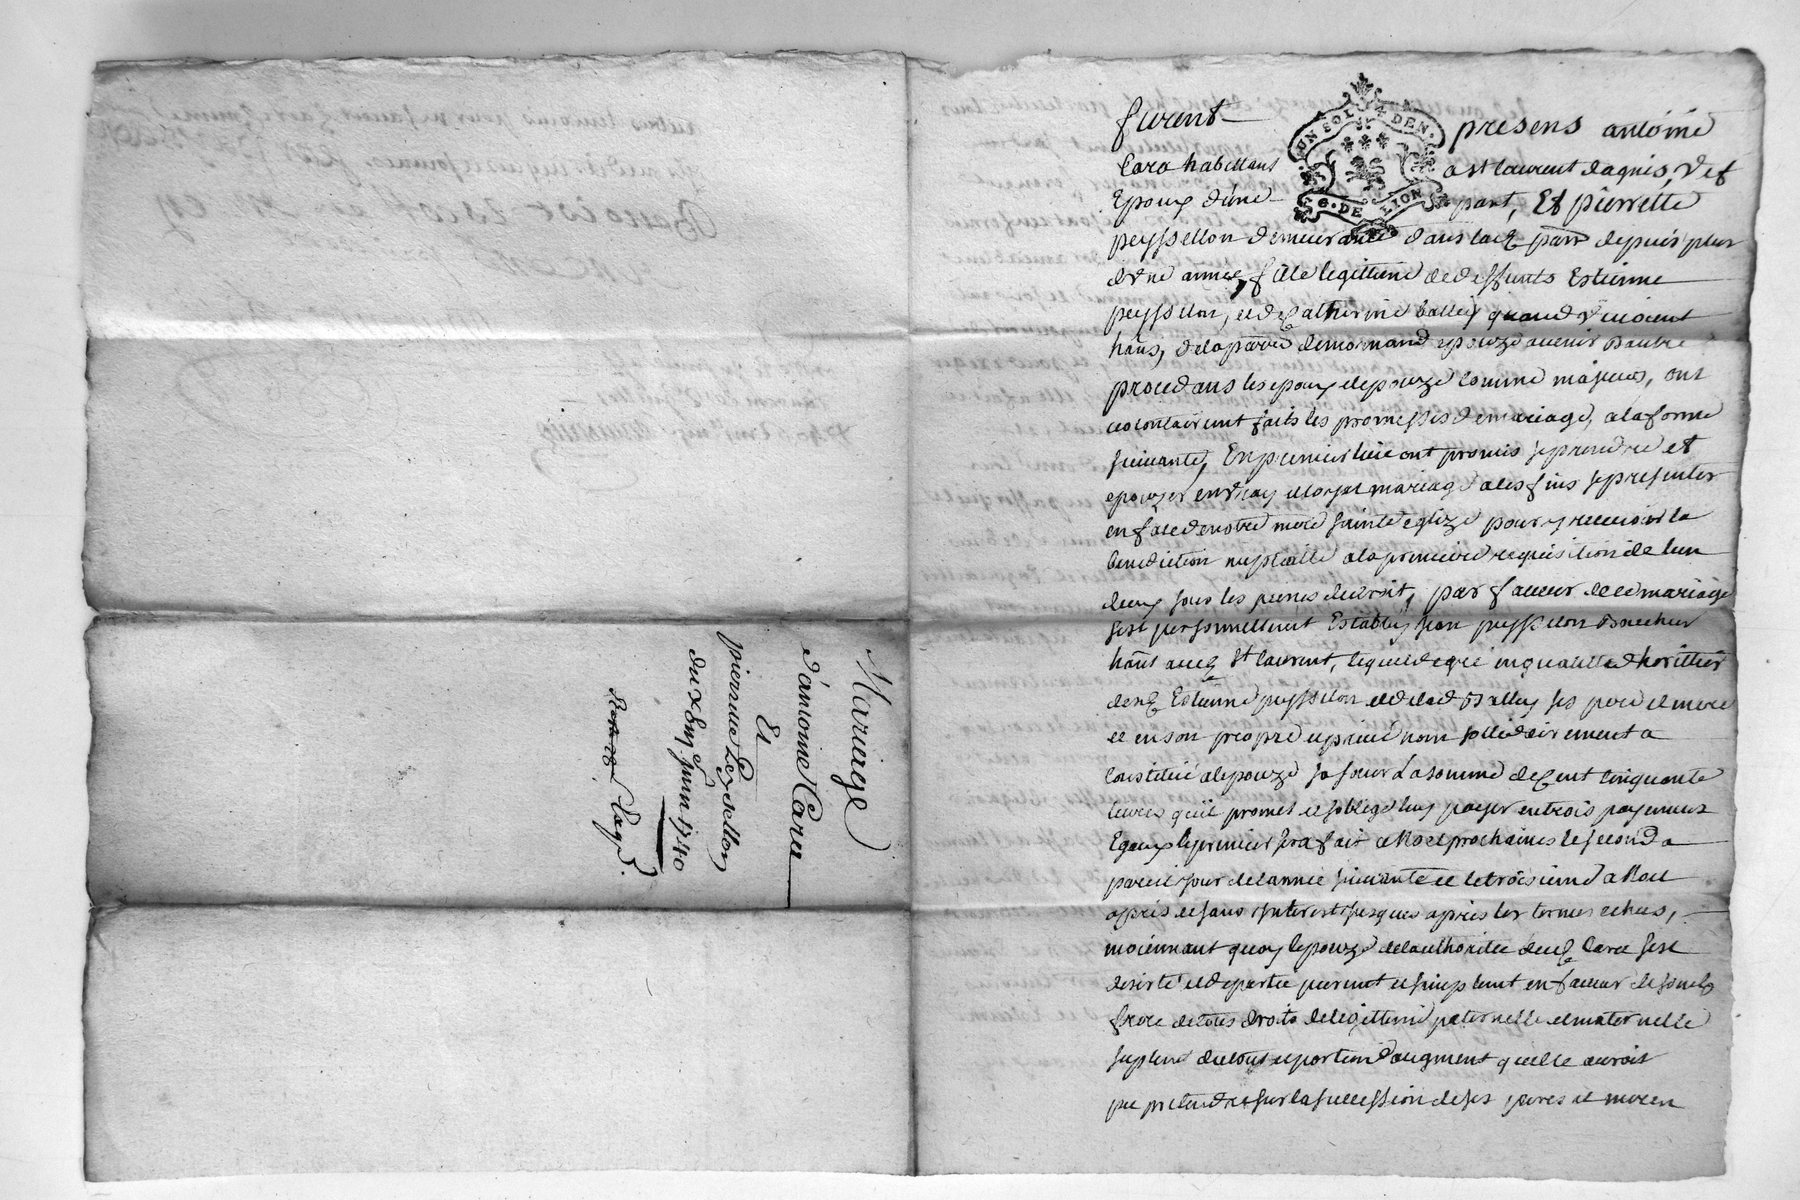 furent presens antoine
Cara habittans a st laurent dagnis, Vef
Epoux d'une part, Et pierrette
peyssellon demeurante dans lad parr depuis plus
d'vne année, fille legittime de deffunts Estienne
peyssellon, et de Catherine balley quand vivoient
hans, de la parre de mornand epouze avenir d'autre
procedans les epoux et epouze comme majeurs, ont
volontairemt faits les promesses de mariage, a la forme
suivante, En premier lieu ont promis se prendre et
epouzer en vray et loyal mariage a les fins se presenter
en face de notre mere sainte eglize pour y recevoir la
benediction nuptialle a la premiere requisition de lun
deux sous les peines de droit, par faveur de ce mariage
sest personnellement Estably jean peyssellon
hant aud st laurent, lequel de gré en qualitté d'herittier
desd Estienne peyssellon et de lad Balley ses pere et mere
et en son propre et privé nom sollidairement a
constitué a lepouze sa soeur la somme de Cent cinquante
livres qu'il promet et soblige luy payer en trois payements
Egaux le premier sera fait a Noel prochaines le second a
pareil jour de lannée suivante et le troisieme a Noel
apres et sans interests jusques apres les termes echus,
moiennant quoy lepouze de lauthorité dud Cara sest
desisté et departie puremt et simplemt en faveur de sond
frere de tous droits de legittime paternelle et maternelle
suplemt dicelle et portion d'augment quelle auroit
pu pretendre sur la succession de ses peres et meres
Mariage
d'antoine Cara
Et
pierrette Peyssellon
du juin 1740
UN SOL 4 DEN.
G. DE LION